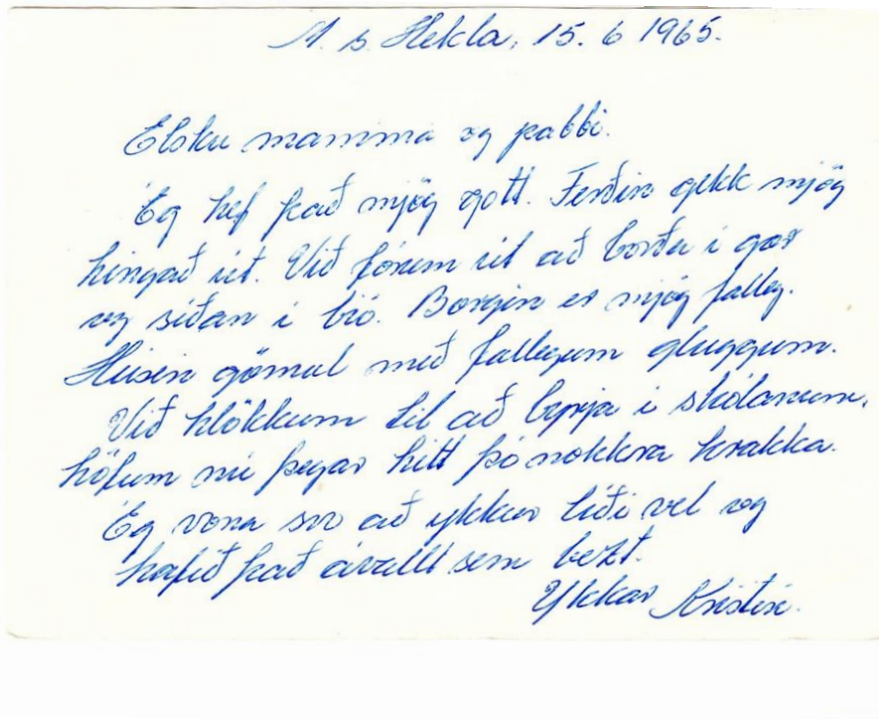 M. s. Hekla, 15. 6 1965.
Elsku mamma og pabbi.
Ég hef það mjög gott. Ferðin gekk mjög
hingað út. Við fórum út að borða í gær
og síðan í bíó. Borgin er mjög falleg.
Húsin gömul með fallegum gluggum.
Við hlökkum til að byrja í skólanum,
höfum nú þegar hitt þó nokkra krakka.
Ég vona svo að ykkur líði vel og
hafið það ávallt sem bezt.
Ykkar Kristín.